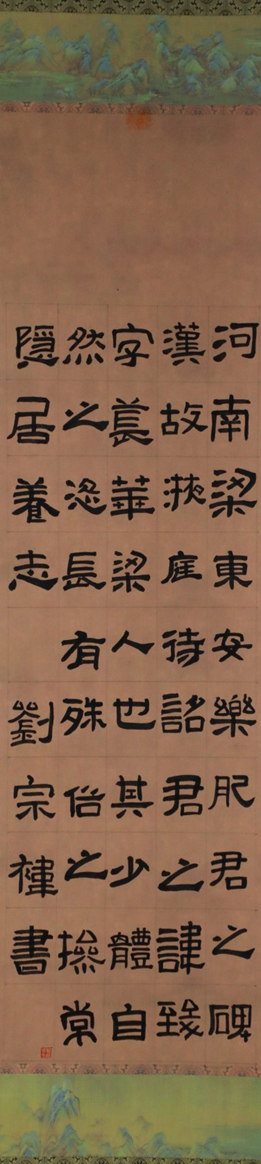 河南梁東安樂肥君之碑
漢故掖庭待詔君之諱致
字萇華梁人也其少體自
然之恣長有殊俗之操常
隱居養志
劉宗書